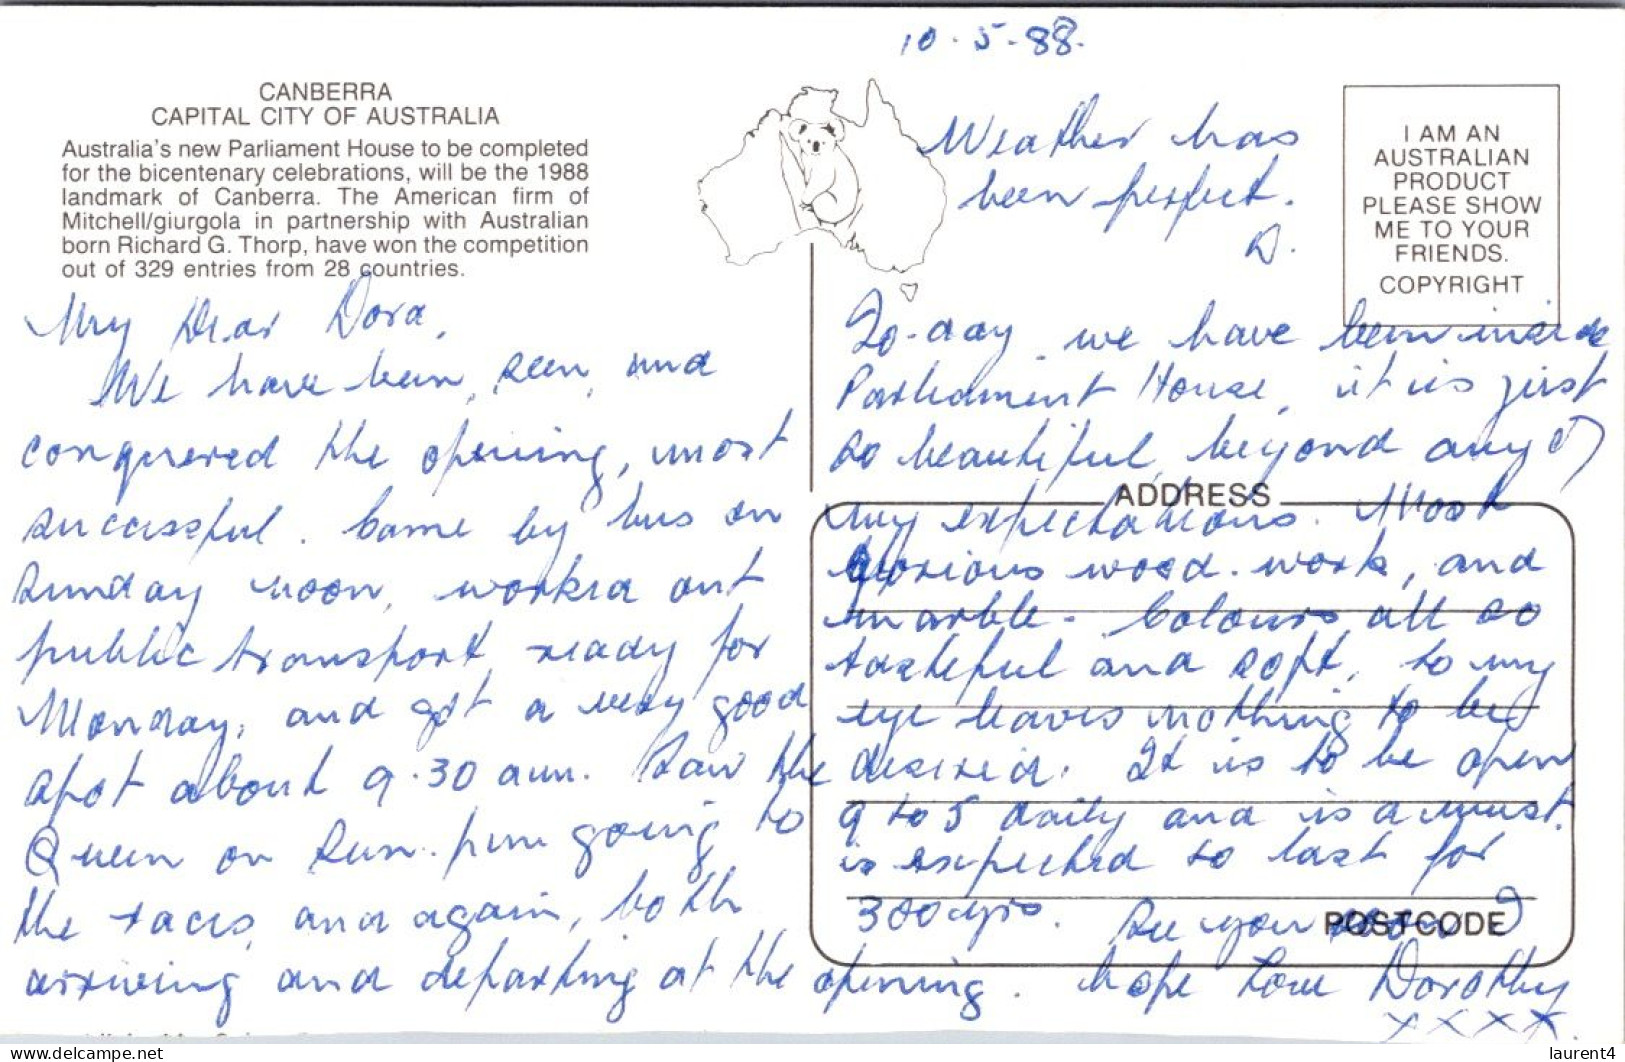 10.5.88.
CANBERRA
CAPITAL CITY OF AUSTRALIA
Australia's new Parliament House to be completed
for the bicentenary celebrations, will be the 1988
landmark of Canberra. The American firm of
Mitchell/giurgola in partnership with Australian
born Richard G. Thorp, have won the competition
out of 329 entries from 28 countries.
Weather has
been perfect.
D.
I AM AN
AUSTRALIAN
PRODUCT
PLEASE SHOW
ME TO YOUR
FRIENDS.
COPYRIGHT
My Dear Dora,
We have been, seen, and
conquered the opening, most
successful. Came by bus on
Sunday noon, worked out
public transport, ready for
Monday, and got a very good
spot about 9.30 am. Saw the
Queen on Sun. pm going to
the races, and again, both
arriving and departing at the opening.
To-day we have been inside
Parliament House, it is just
so beautiful, beyond any of
my expectations. Most
glorious wood-work, and
marble. Colours all so
tasteful and soft, to my
eye leaves nothing to be
desired. It is to be open
9 to 5 daily and is a must.
is expected to last for
300 yrs. See you soon I
hope Love Dorothy
xxxx.
ADDRESS
POSTCODE
laurent4